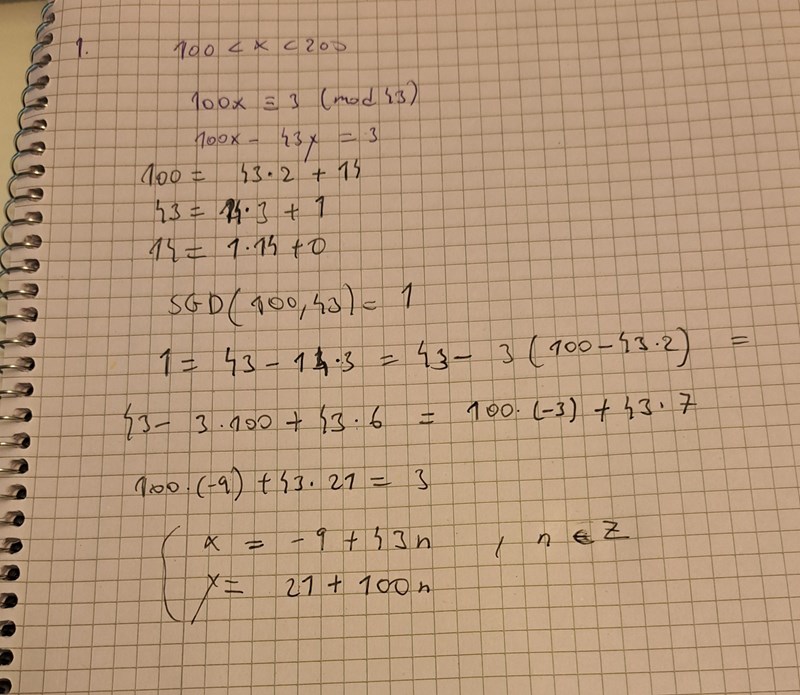 1. 100 < x < 200
100x ≡ 3 (mod 43)
100x - 43y = 3
100 = 43·2 + 14
43 = 14·3 + 1
14 = 1·14 + 0
SGD(100,43) = 1
1 = 43 - 14·3 = 43 - 3(100 - 43·2) =
43 - 3·100 + 43·6 = 100·(-3) + 43·7
100·(-9) + 43·21 = 3
x = -9 + 43n , n ∈ Z
y = 21 + 100n